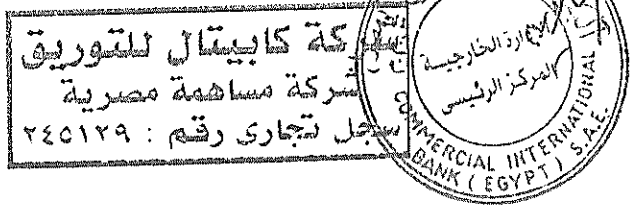 شركة كابيتال للتوريق
شركة مساهمة مصرية
سجل تجارى رقم : ٢٤٥١٢٩
الخارجية
المركز الرئيسى
COMMERCIAL INTERNATIONAL
BANK ( EGYPT ) S.A.E.